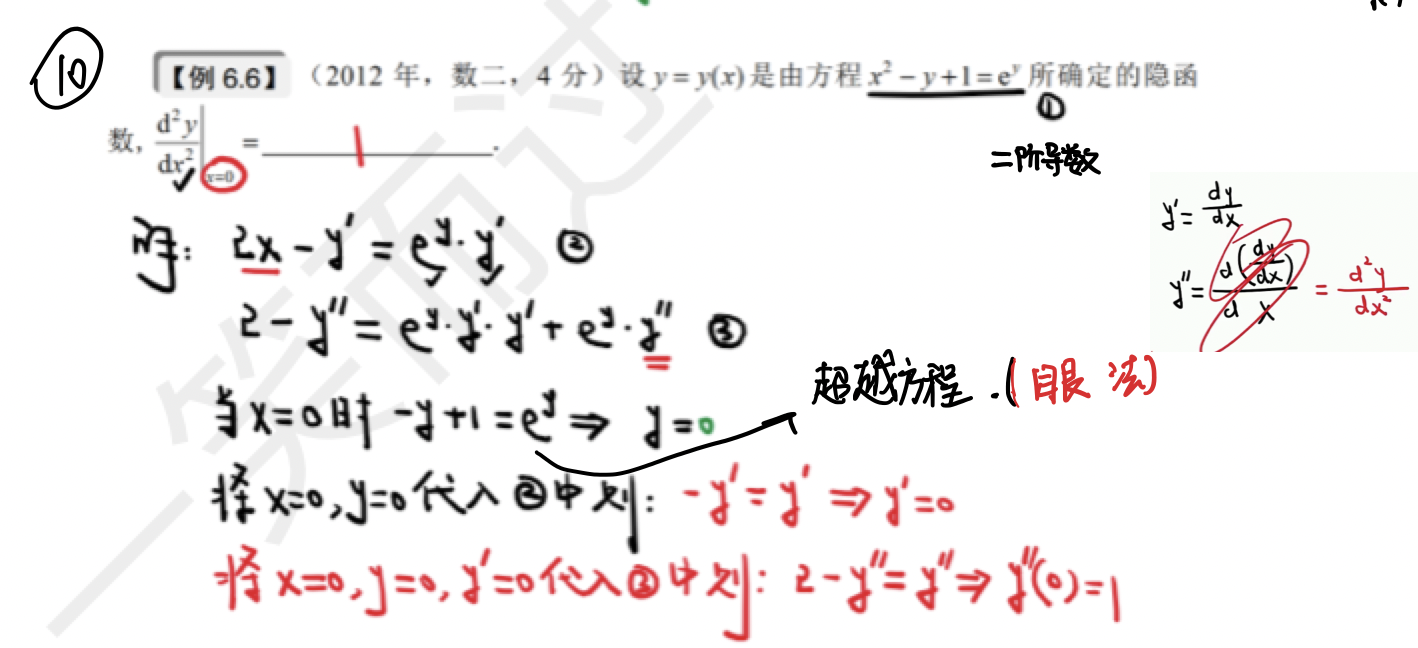 ⑩ 【例 6.6】（2012 年，数二，4 分）设 y = y(x) 是由方程 x² − y + 1 = eʸ 所确定的隐函
①
数，d²y/dx² |x=0 = 1 .
二阶导数
y' = dy/dx
y'' = d(dy/dx)/dx = d²y/dx²
导: 2x − y' = eʸ·y' ②
2 − y'' = eʸ·y'·y' + eʸ·y'' ③
超越方程.(目艮法)
当 x=0 时 −y+1=eʸ ⇒ y=0
将 x=0, y=0 代入②中则: −y'=y' ⇒ y'=0
将 x=0, y=0, y'=0 代入③中则: 2−y''=y'' ⇒ y''(0)=1
一笑而过